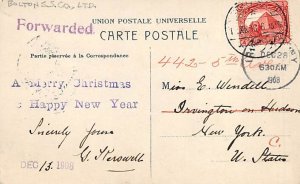 BOLTON S.S. CO., LTD.
UNION POSTALE UNIVERSELLE
Forwarded.
CARTE POSTALE
Partie réservée à la Correspondance
442-5th
A Merry Christmas
& Happy New Year
Miss E. Wendell
Irvington on Hudson
New York.
U. States
Sincerely yours
DEC 28
630AM
1908
DEC 13 1908